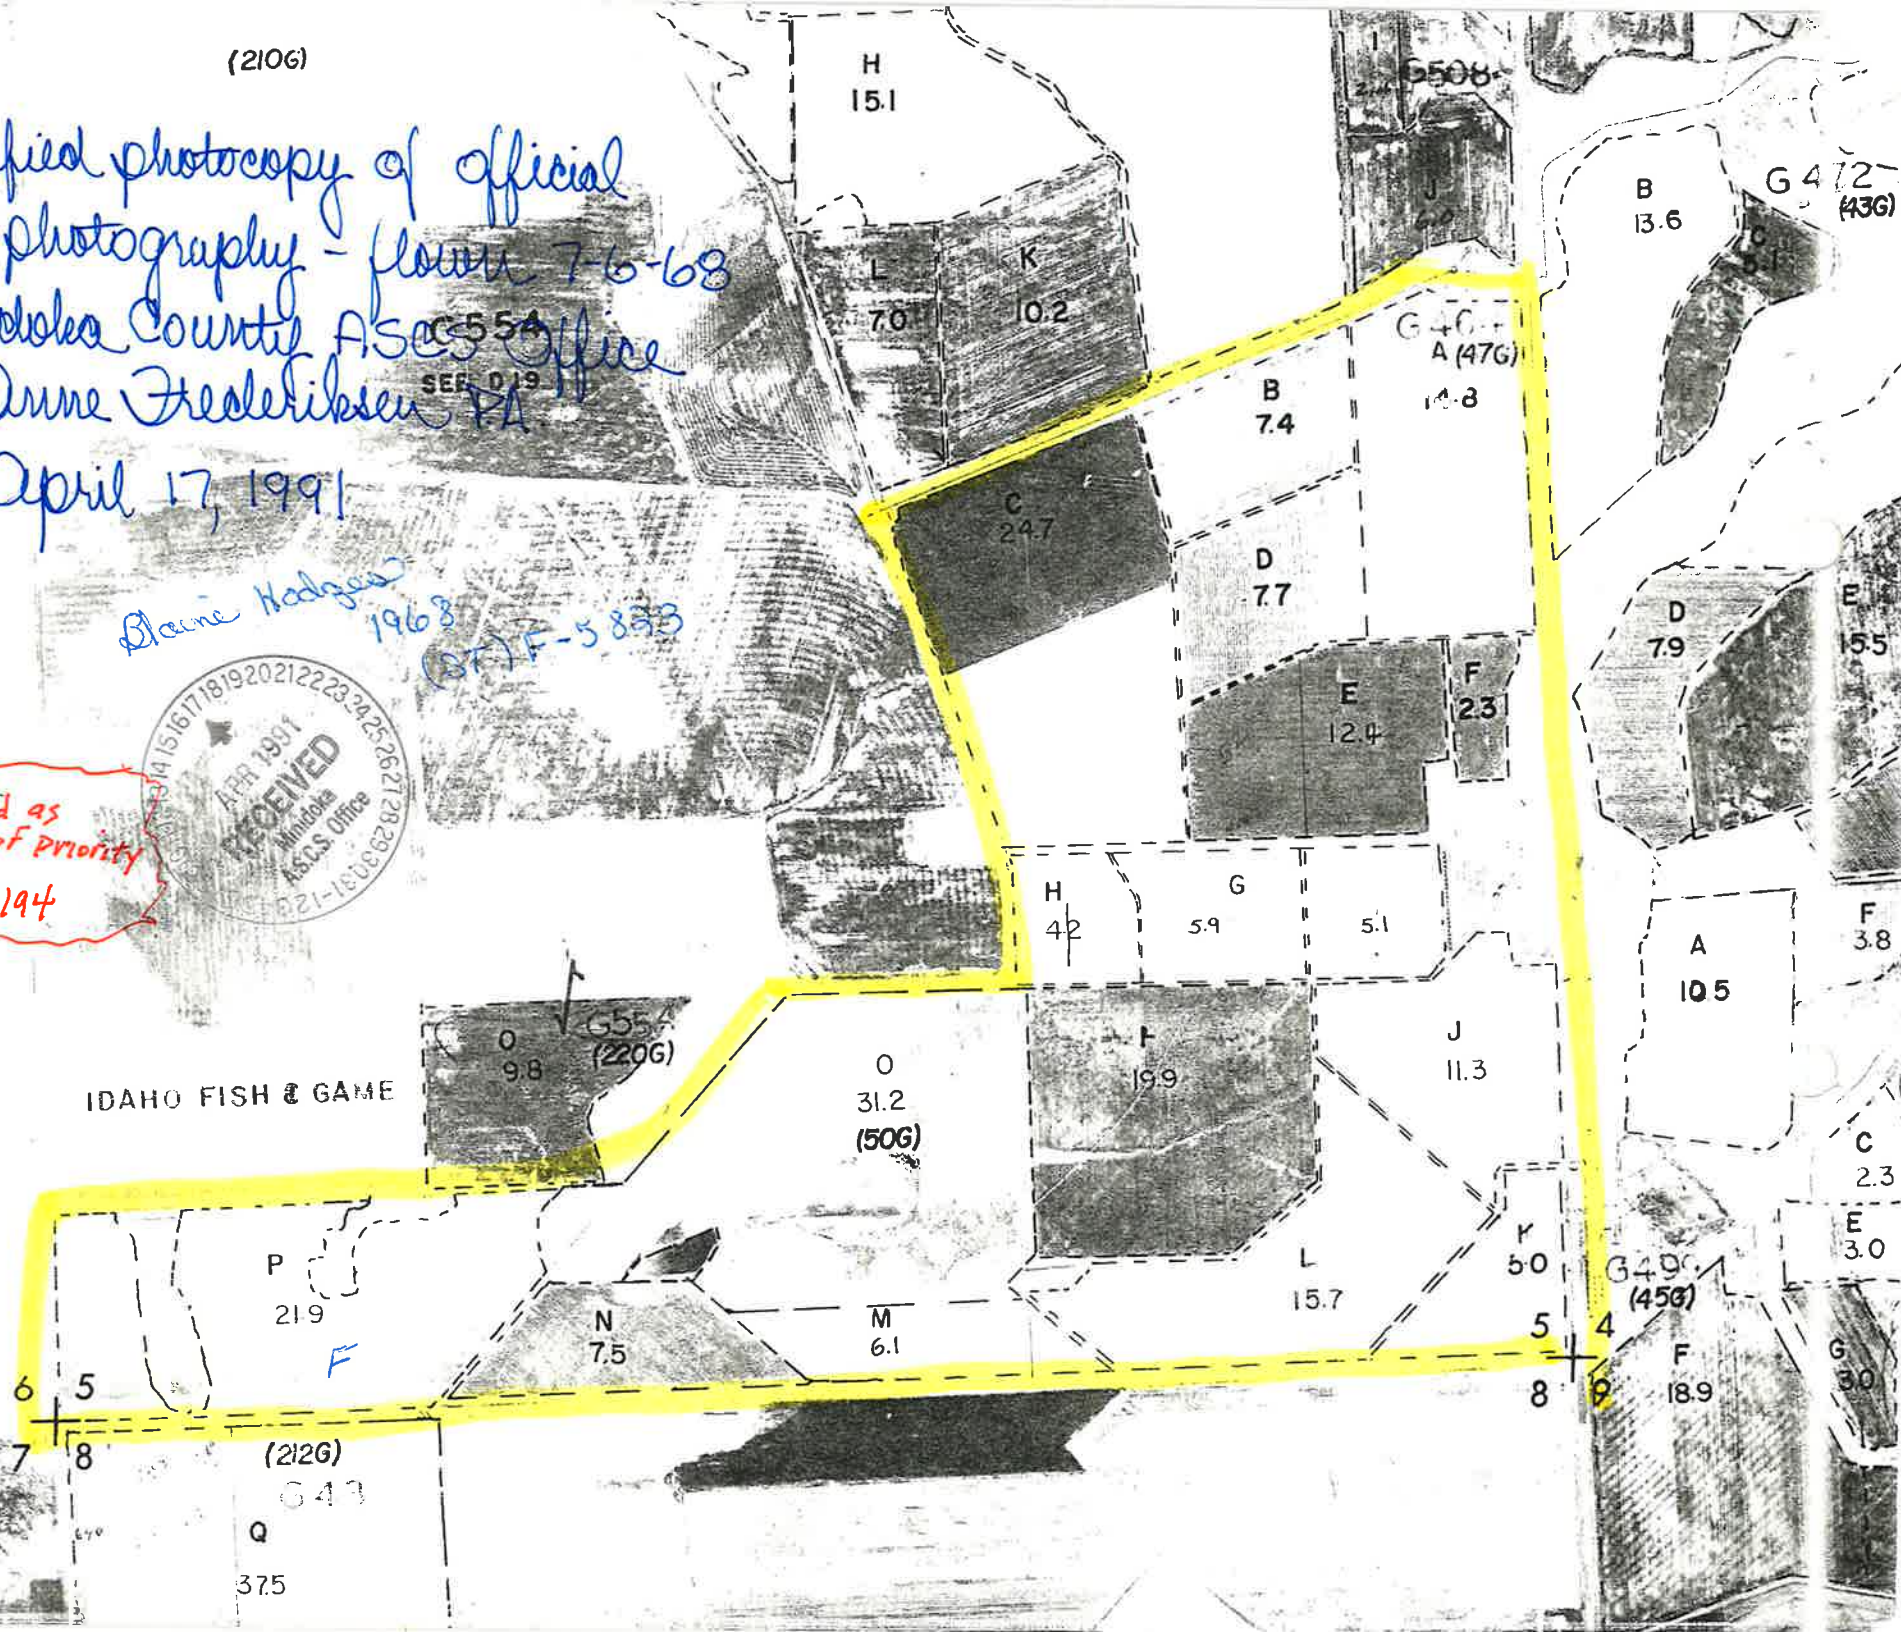 (210G)
fied photocopy of official
photography - flown 7-6-68
doka County ASCS Office
Anne Frederiksen PA
April 17, 1991
G554
SEE D19
Blaine Hodges
1968
(ST) F-5833
APR 1991
RECEIVED
Minidoka
A.S.C.S. Office
d as
of priority
194
IDAHO FISH & GAME
H
15.1
L
7.0
K
10.2
G508
J
6.0
B
13.6
G 472
(43G)
C
5.1
A (47G)
14.8
B
7.4
C
24.7
D
7.7
E
12.4
F
2.3
D
7.9
E
15.5
H
4.2
G
5.9
5.1
A
10.5
F
3.8
O
9.8
G554
(220G)
O
31.2
(50G)
I
19.9
J
11.3
C
2.3
E
3.0
P
21.9
F
N
7.5
M
6.1
L
15.7
K
5.0
(45G)
5 4
8 9
F
18.9
G
3.0
6 5
7 8
(212G)
G43
Q
37.5